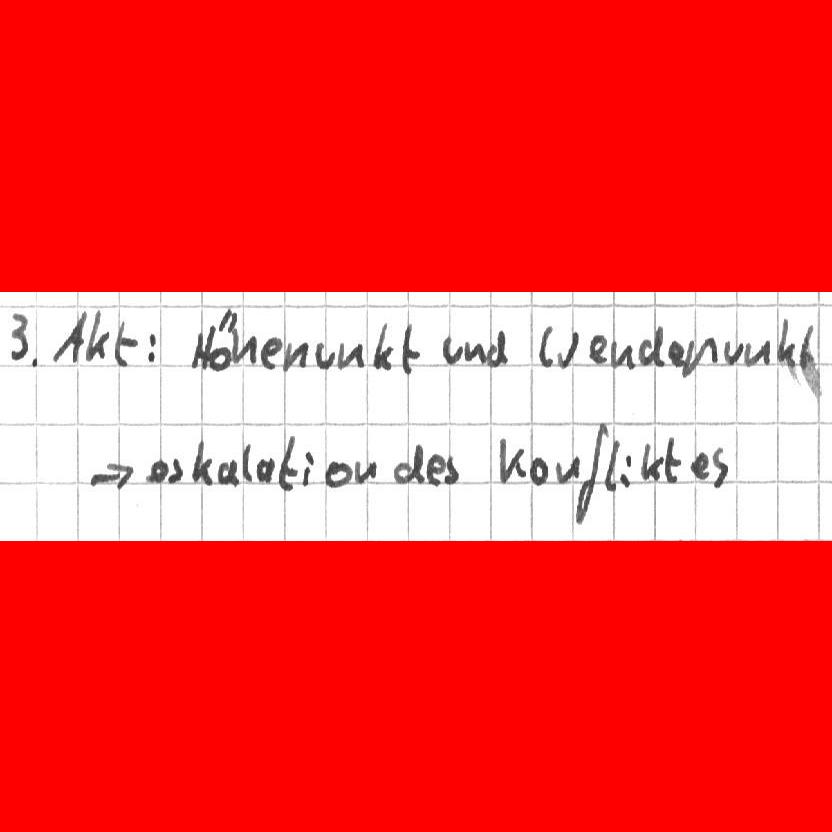 3. Akt: Höhenunkt und Wendepunkt
→ eskalation des Konfliktes